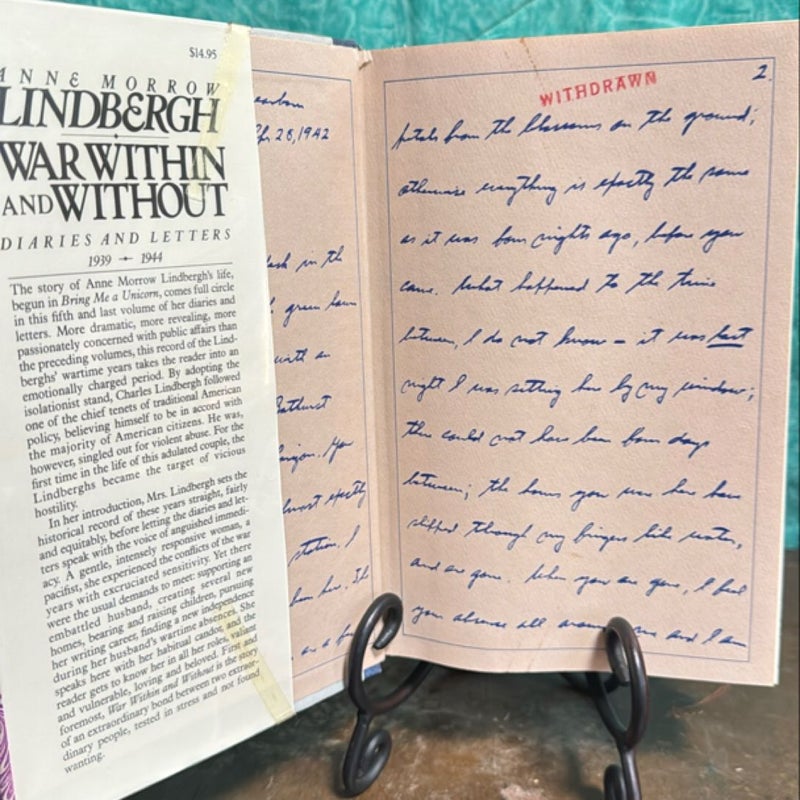 $14.95
ANNE MORROW
LINDBERGH
WAR WITHIN
AND WITHOUT
DIARIES AND LETTERS
1939 1944
The story of Anne Morrow Lindbergh's life,
begun in Bring Me a Unicorn, comes full circle
in this fifth and last volume of her diaries and
letters. More dramatic, more revealing, more
passionately concerned with public affairs than
the preceding volumes, this record of the Lind-
berghs' wartime years takes the reader into an
emotionally charged period. By adopting the
isolationist stand, Charles Lindbergh followed
one of the chief tenets of traditional American
policy, believing himself to be in accord with
the majority of American citizens. He was,
however, singled out for violent abuse. For the
first time in the life of this adulated couple, the
Lindberghs became the target of vicious
hostility.
In her introduction, Mrs. Lindbergh sets the
historical record of these years straight, fairly
and equitably, before letting the diaries and let-
ters speak with the voice of anguished immedi-
acy. A gentle, intensely responsive woman, a
pacifist, she experienced the conflicts of the war
years with excruciated sensitivity. Yet there
were the usual demands to meet: supporting an
embattled husband, creating several new
homes, bearing and raising children, pursuing
her writing career, finding a new independence
during her husband's wartime absences. She
speaks here with her habitual candor, and the
reader gets to know her in all her roles, valiant
and vulnerable, loving and beloved. First and
foremost, War Within and Without is the story
of an extraordinary bond between two extraor-
dinary people, tested in stress and not found
wanting.
28, 1942
in the
green
with an
exactly
station. I
WITHDRAWN
2.
petals from the blossoms on the ground;
otherwise everything is exactly the same
as it was four nights ago, before you
came. What happened to the time
between, I do not know — it was last
night I was sitting here by my window;
there could not have been four days
between; the hours you were here have
slipped through my fingers like water,
and are gone. When you are gone, I feel
your absence all around me and I am